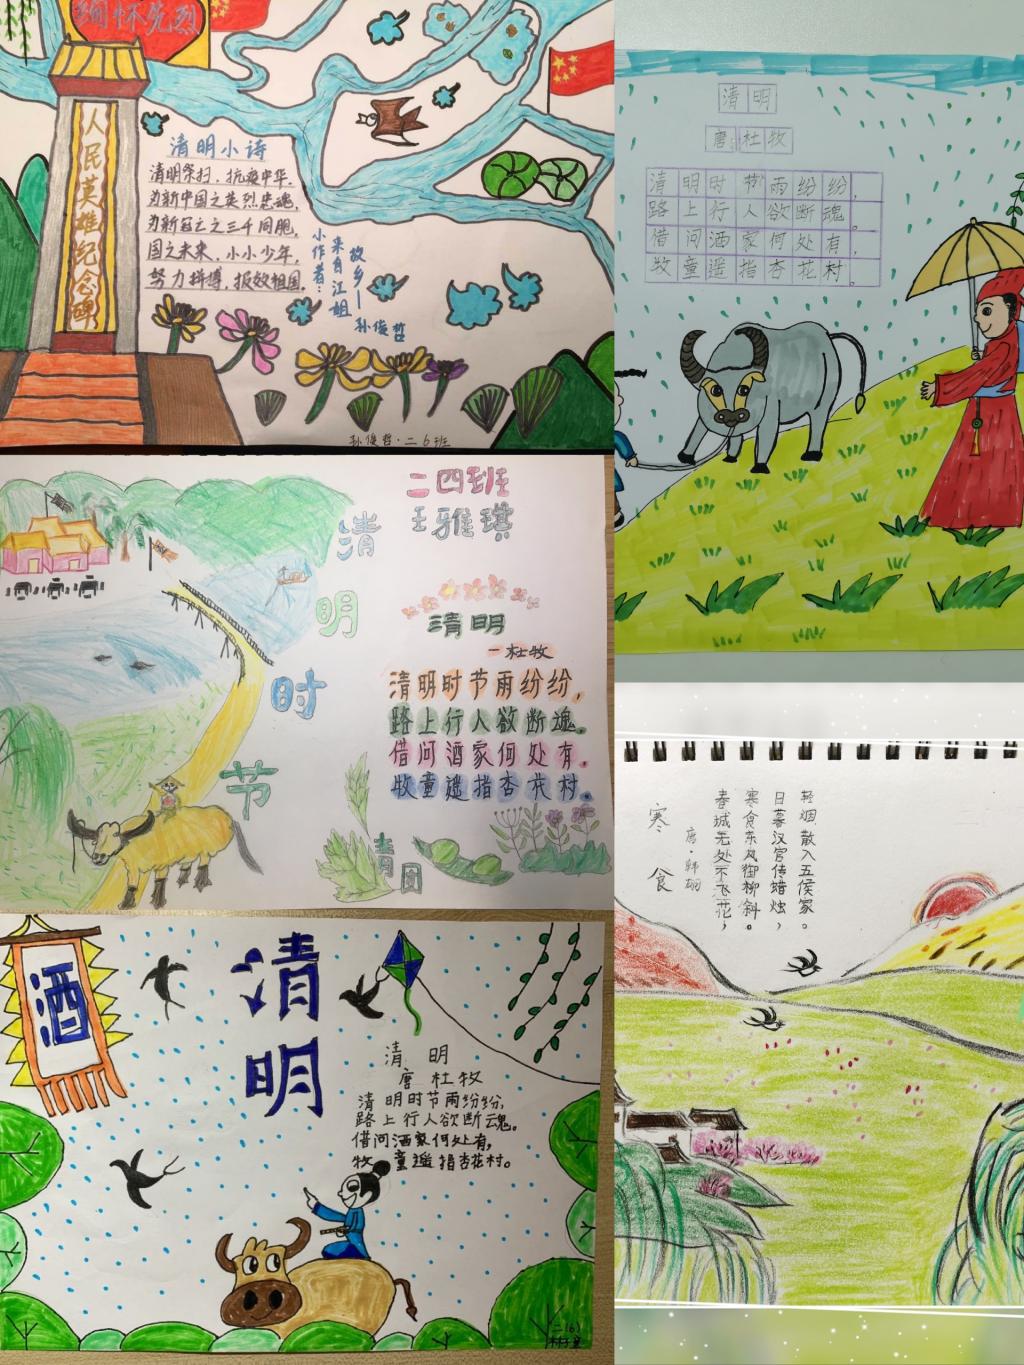 缅怀先烈
人民英雄纪念碑
清明小诗
清明祭扫，抗疫中华，
为新中国之英烈忠魂，
为新冠亡之三千同胞，
国之未来，小小少年，
努力拼搏，报效祖国。
故乡——
来自江姐
小作者：
孙俊哲
孙俊哲·二6班
清明
唐：杜牧
清明时节雨纷纷，
路上行人欲断魂。
借问酒家何处有，
牧童遥指杏花村。
二四班
王雅琪
清明时节
清明
—杜牧
清明时节雨纷纷，
路上行人欲断魂。
借问酒家何处有，
牧童遥指杏花村。
青团
寒食
唐·韩翃
春城无处不飞花，
寒食东风御柳斜。
日暮汉宫传蜡烛，
轻烟散入五侯家。
酒
清明
清明
唐 杜牧
清明时节雨纷纷，
路上行人欲断魂。
借问酒家何处有，
牧童遥指杏花村。
二(6)